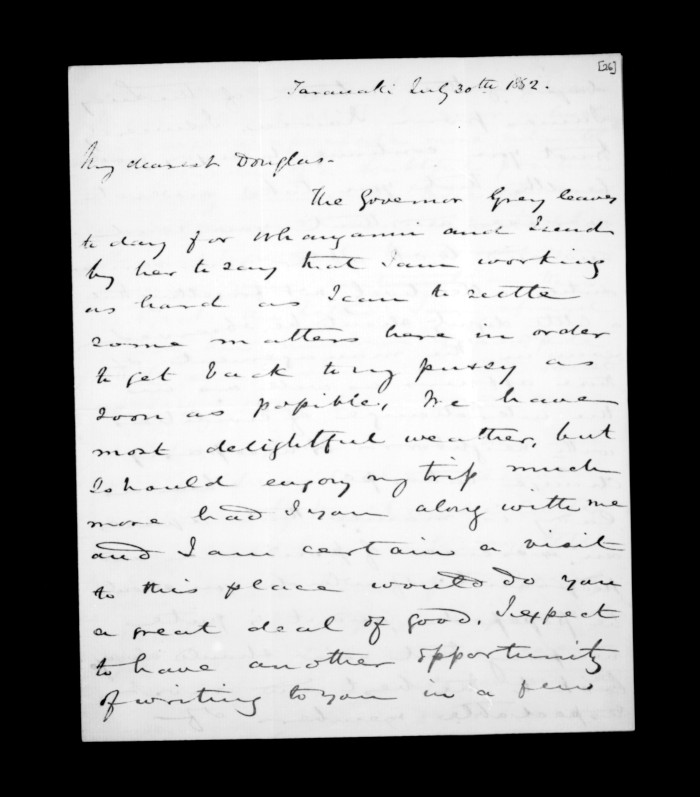 [26]
Taranaki July 30th 1852.
My dearest Douglas.
The Governor Grey leaves
to day for Whanganui and I send
by her to say that I am working
as hard as I can to settle
some matters here in order
to get back to my pussy as
soon as possible, We have
most delightful weather, but
I should enjoy my trip much
more had I you along with me
and I am certain a visit
to this place would do you
a great deal of good. I expect
to have another opportunity
of writing to you in a few